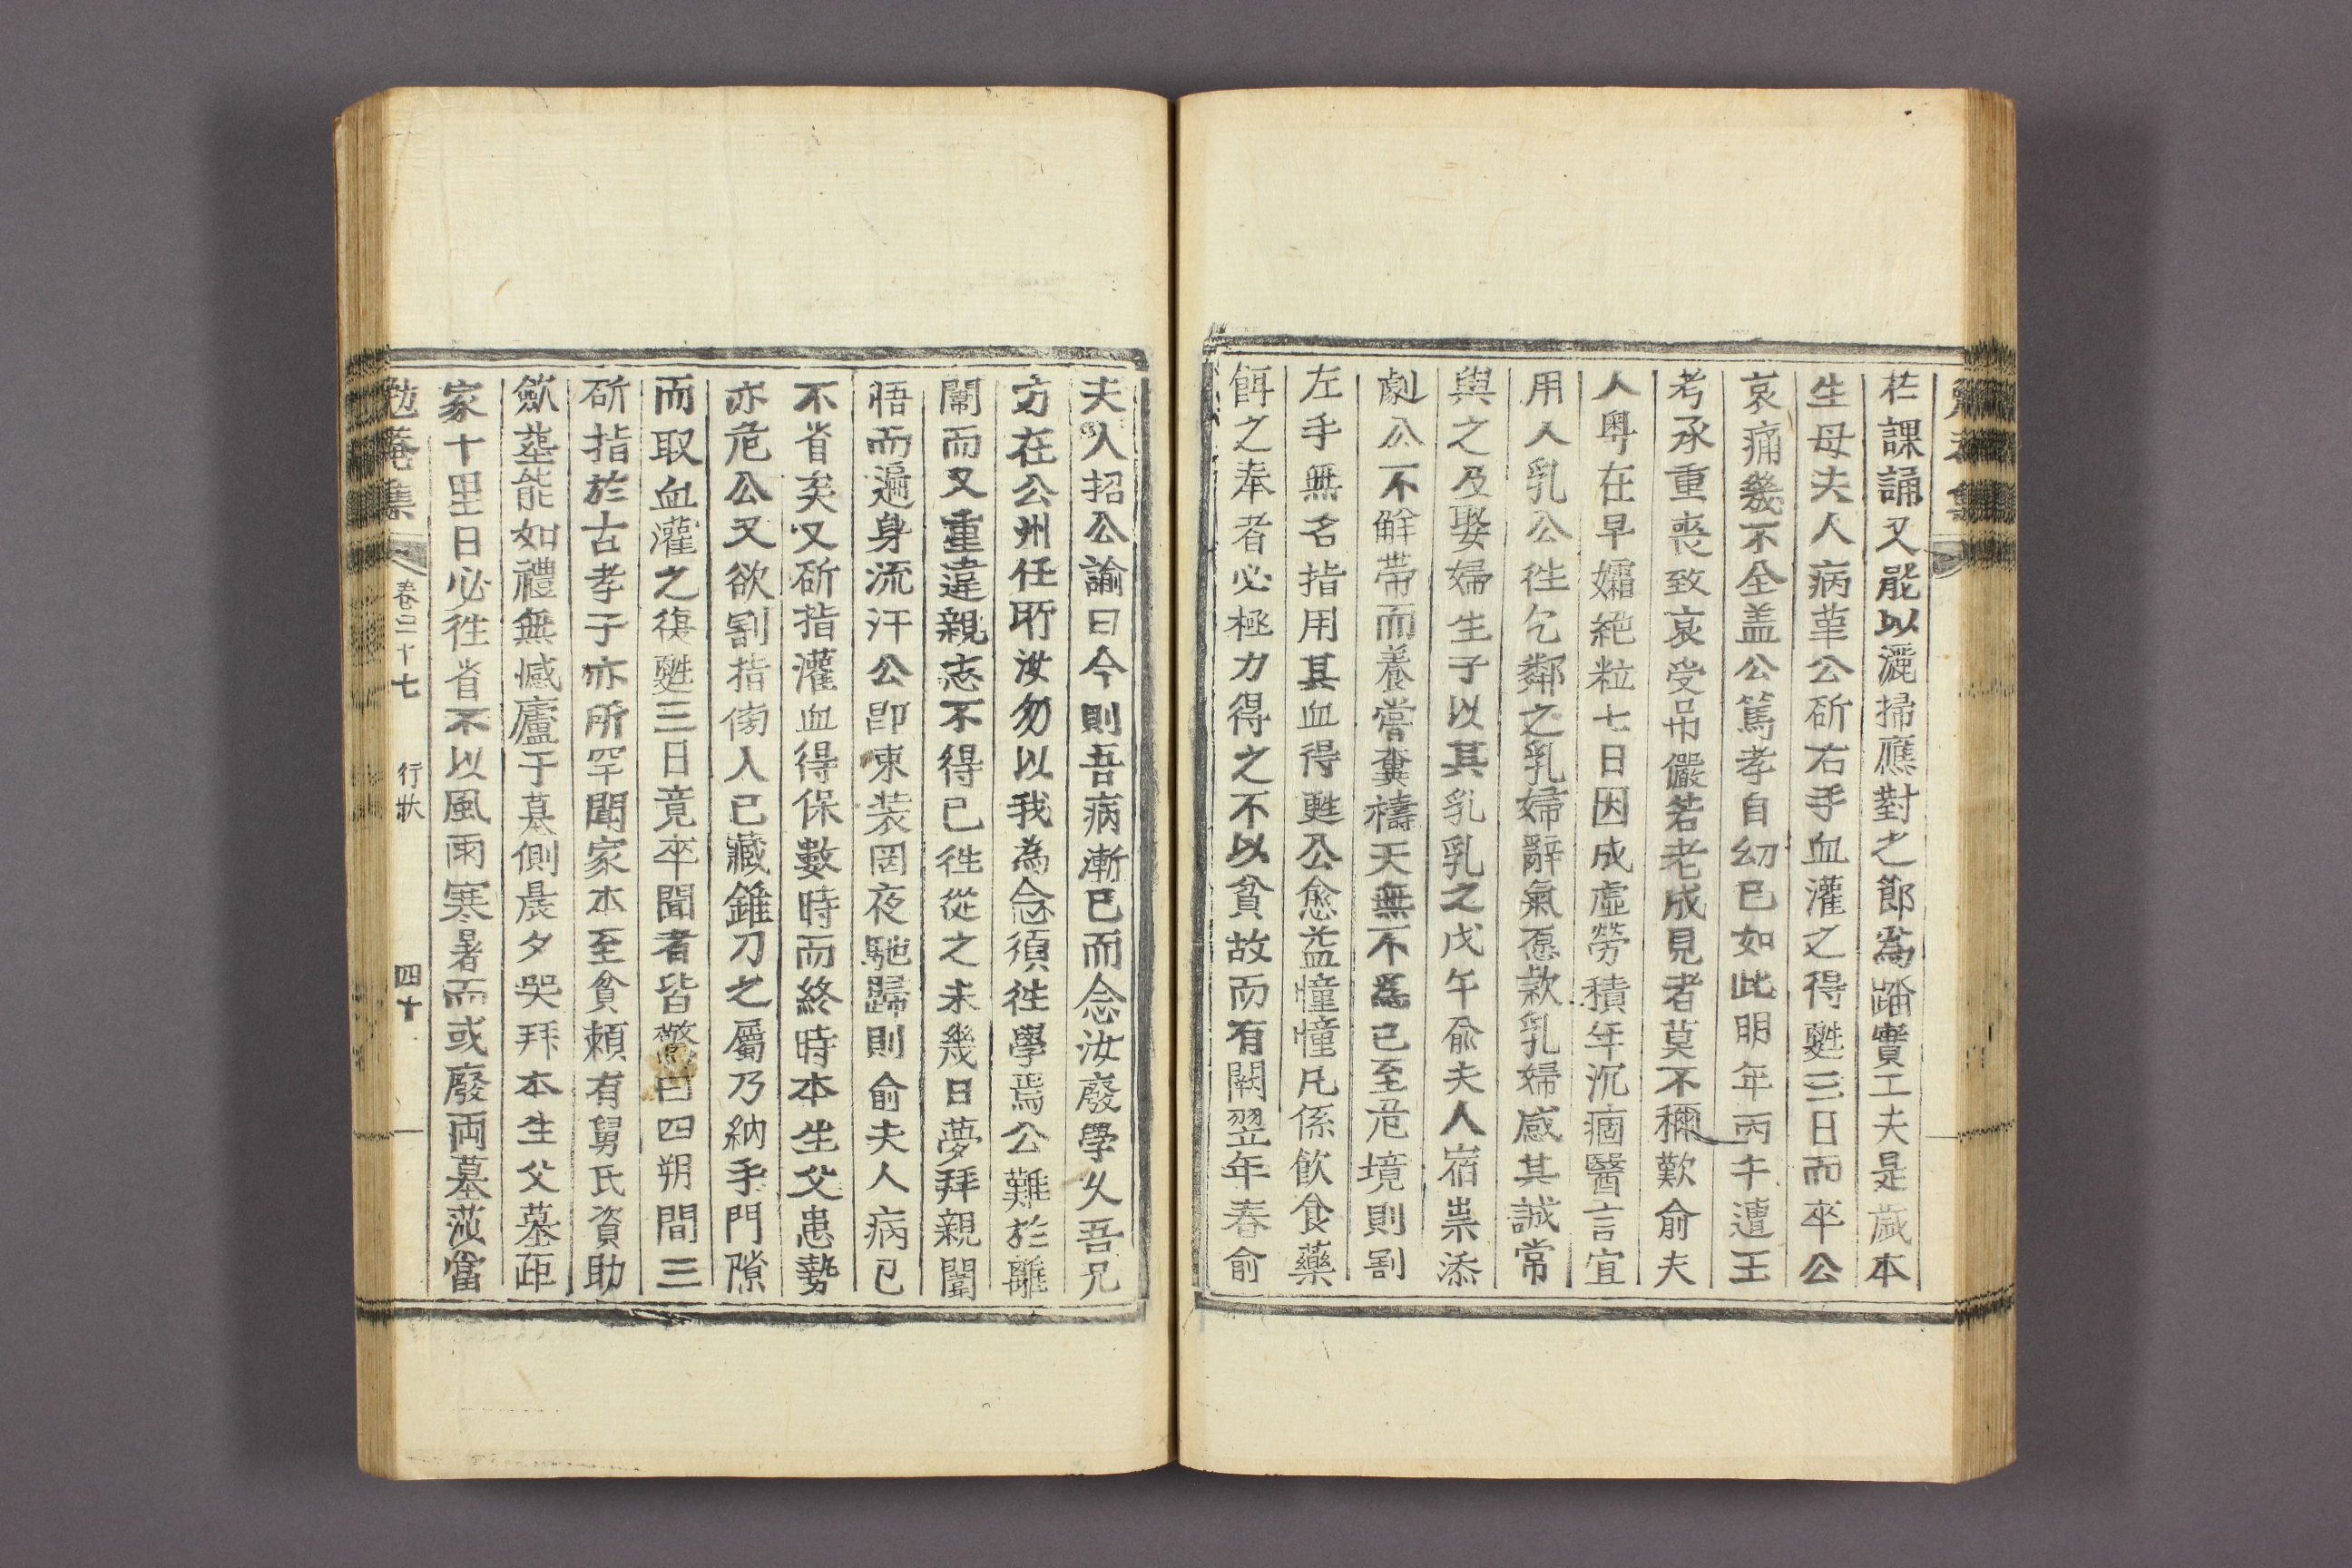 在課誦又能以灑掃應對之節為踏實工夫是歲本
生母夫人病革公斫右手血灌之得甦三日而卒公
哀痛幾不全盖公篤孝自幼已如此明年丙午遭王
考承重喪致哀受吊儼若老成見者莫不稱歎俞夫
人粤在早孀絶粒七日因成虛勞積年沉痼醫言宜
用人乳公徃乞鄰之乳婦辭氣懇欵乳婦感其誠常
與之及娶婦生子以其乳乳之戊午俞夫人宿祟添
劇公不解帶而養嘗糞禱天無不為已至危境則割
左手無名指用其血得甦公愈益憧憧凡係飮食藥
餌之奉者必極力得之不以貧故而有闕翌年春俞
夫人招公諭曰今則吾病漸已而念汝廢學久吾兄
方在公州任所汝勿以我為念須徃學焉公難於離
闈而又重違親志不得已徃從之未幾日夢拜親闈
悟而遍身流汗公卽束装罔夜馳歸則俞夫人病已
不省矣又斫指灌血得保數時而終時本生父患勢
亦危公又欲割指傍人已藏錐刀之屬乃納手門隙
而取血灌之復甦三日竟卒聞者皆驚曰四朔間三
斫指於古孝子亦所罕聞家本至貧頼有舅氏資助
歛塟能如禮無憾廬于墓側晨夕哭拜本生父墓距
家十里日必徃省不以風雨寒暑而或廢両墓莎當
勉菴集 卷三十七 行狀 四十